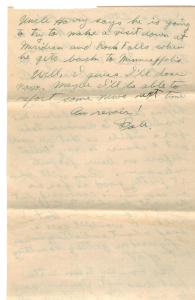 Uncle Harvey says he is going
to try to make a visit down at
Meridian and Rock Falls when
he gets back to Minneapolis.
Well, I guess I'll close
now, maybe I'll be able to
report some news next time
Au revoir!